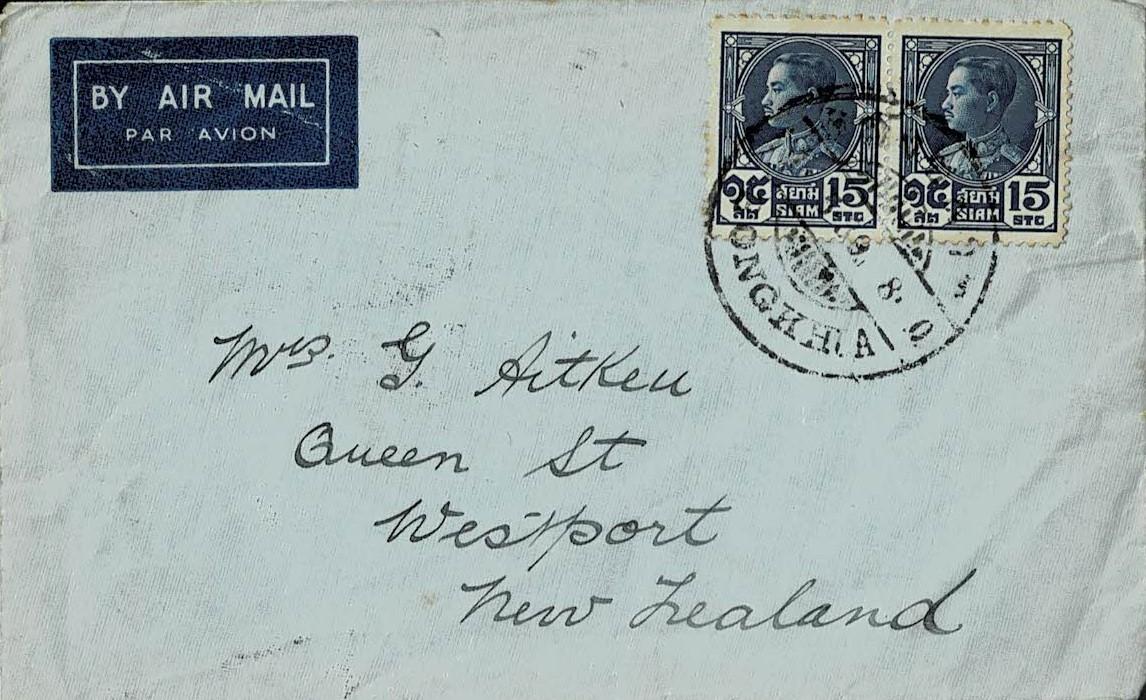 BY AIR MAIL
PAR AVION
๑๕ สยาม 15
สต SIAM STG
๑๕ สยาม 15
สต SIAM STG
ONGKHLA
9. 8.
Mrs. G. Aitken
Queen St
Westport
New Zealand